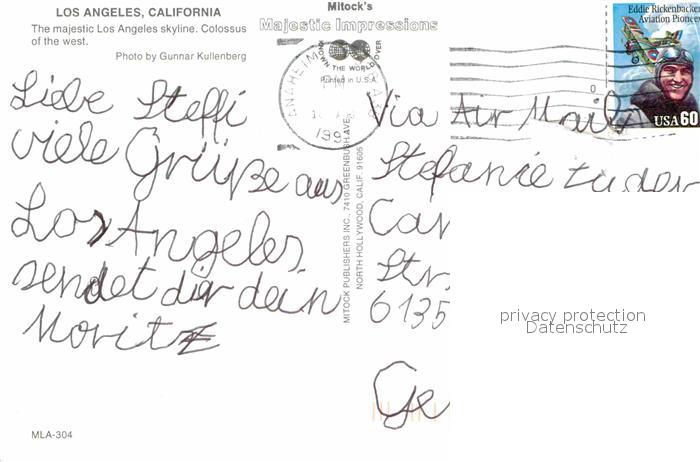 LOS ANGELES, CALIFORNIA
The majestic Los Angeles skyline. Colossus
of the west.
Photo by Gunnar Kullenberg
Mitock's
Majestic Impressions
KNOWN THE WORLD OVER
Printed in U.S.A.
ANAHEIM
Eddie Rickenbacker
Aviation Pioneer
USA 60
Liebe Steffi
viele Grüße aus
Los Angeles
sendet dir dein
Moritz
MITOCK PUBLISHERS INC. 7410 GREENBUSH AVE.
NORTH HOLLYWOOD, CALIF. 91605
Via Air Mail
Stefanie
Car
Str.
6135
Ge
privacy protection
Datenschutz
MLA-304